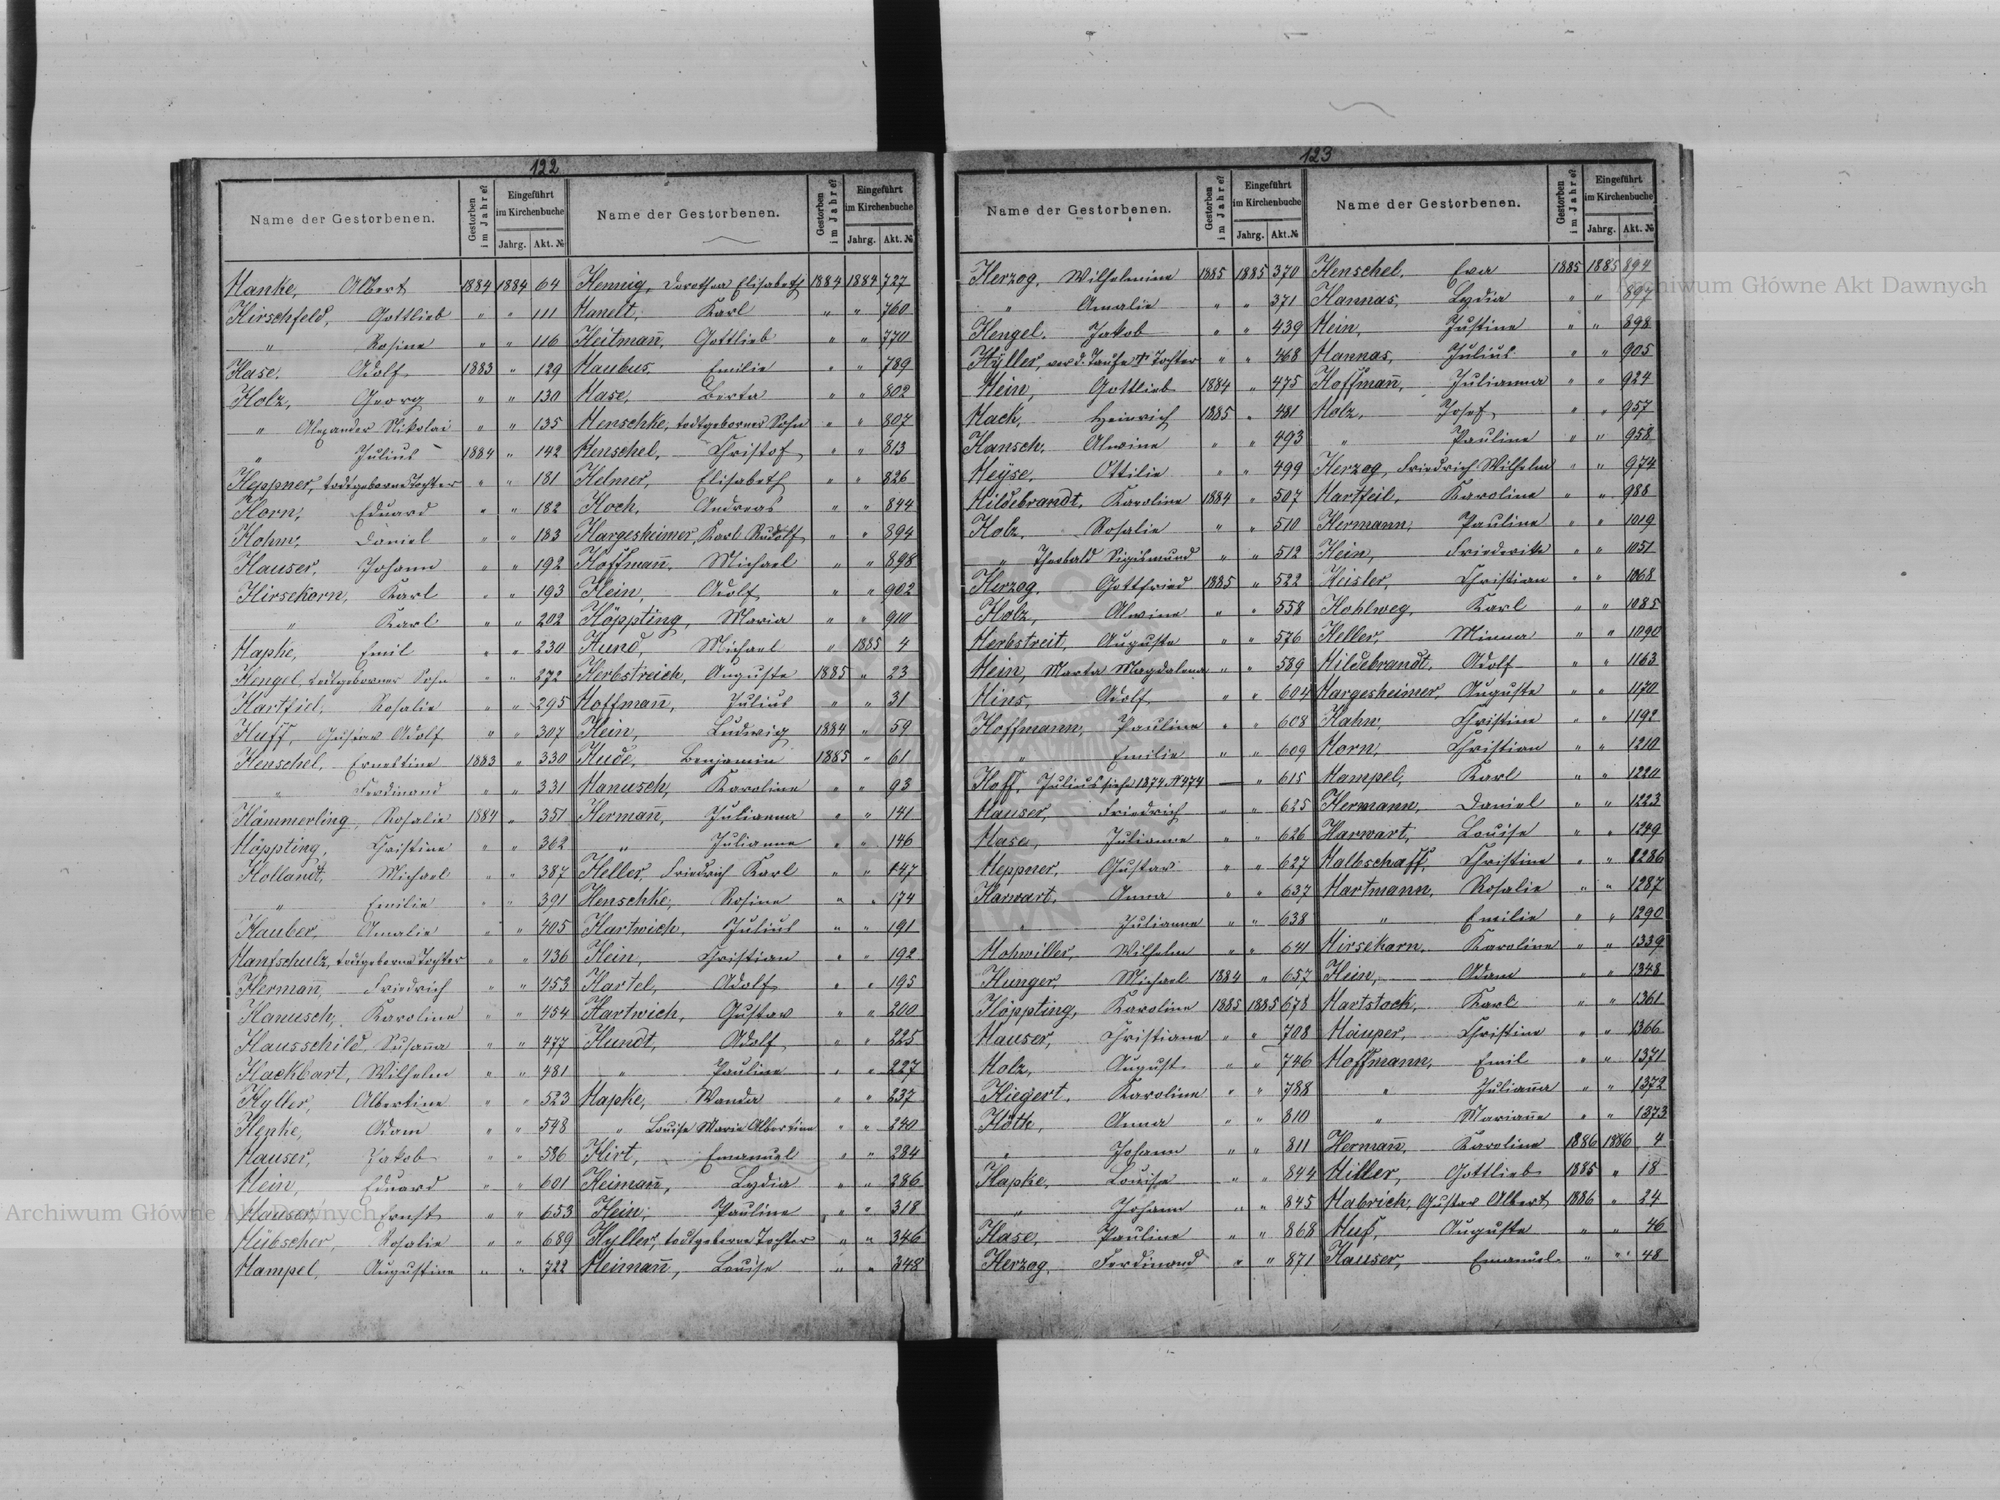 122
Name der Gestorbenen. Gestorben im Jahre? Eingeführt im Kirchenbuche Jahrg. Akt. № Name der Gestorbenen. Gestorben im Jahre? Eingeführt im Kirchenbuche Jahrg. Akt. №
Hanke, Albert 1884 1884 64
Hirschfeld, Gottlieb " " 111
" Rosine " " 116
Hase, Adolf 1883 " 129
Holz, Georg " " 130
" Alexander Nikolai " " 135
" Julius 1884 " 142
Heppner, todtgeborene Tochter " " 181
Horn, Eduard " " 182
Hohm, Daniel " " 183
Hauser, Johann " " 192
Hirsekorn, Karl " " 193
" Karl " " 202
Hapke, Emil " " 230
Hengel, todtgeborner Sohn " " 272
Hartfiel, Rosalie " " 295
Huff, Gustav Adolf " " 307
Henschel, Ernestine 1883 " 330
" Ferdinand " " 331
Hämmerling, Rosalie 1884 " 351
Höppting, Christine " " 362
Hollandt, Michael " " 387
" Emilie " " 391
Hauber, Amalie " " 405
Hanfschulz, todtgeborne Tochter " " 436
Hermañ, Friedrich " " 453
Hanusch, Karoline " " 454
Hausschild, Susaña " " 477
Hackbart, Wilhelm " " 481
Hyller, Albertine " " 523
Hepke, Adam " " 548
Hauser, Jakob " " 586
Hein, Eduard " " 601
Hauser, Ernst " " 653
Hübscher, Rosalie " " 689
Hampel, Augustine " " 722
Hennig, Dorothea Elisabeth 1884 1884 727
Hanelt, Karl " " 760
Heitmañ, Gottlieb " " 770
Haubus, Emilie " " 789
Hase, Berta " " 802
Henschke, todtgeborner Sohn " " 807
Henschel, Christof " " 813
Helmer, Elisabeth " " 826
Hoch, Andreas " " 844
Hargesheimer, Karl Rudolf " " 894
Hoffmañ, Michael " " 898
Hein, Adolf " " 902
Höppting, Maria " " 910
Hund, Michael " 1885 4
Herbstreich, Auguste 1885 " 23
Hoffmañ, Julius " " 31
Hein, Ludwig 1884 " 59
Hude, Benjamin 1885 " 61
Hanusch, Karoline " " 93
Hermañ, Julianna " " 141
" Julianne " " 146
Heller, Friedrich Karl " " 147
Henschke, Rosine " " 174
Hartwich, Julius " " 191
Hein, Christian " " 192
Hartel, Adolf " " 195
Hartwich, Gustav " " 200
Hundt, Adolf " " 225
" Pauline " " 227
Hapke, Wanda " " 237
" Louise Marie Albertine " " 240
Hirt, Emanuel " " 284
Heimañ, Lydia " " 286
Hein, Pauline " " 318
Hyller, todtgeborne Tochter " " 346
Heimañ, Louise " " 348
123
Name der Gestorbenen. Gestorben im Jahre? Eingeführt im Kirchenbuche Jahrg. Akt. № Name der Gestorbenen. Gestorben im Jahre? Eingeführt im Kirchenbuche Jahrg. Akt. №
Herzog, Wilhelmine 1885 1885 370
" Amalie " " 371
Hengel, Jakob " " 439
Hÿller, vor d. Taufe † Tochter " " 468
Hein, Gottlieb 1884 " 475
Hack, Heinrich 1885 " 481
Hansch, Alwine " " 493
Heÿse, Ottilie " " 499
Hildebrandt, Karoline 1884 " 507
Holz, Rosalie " " 510
" Theobald Sigismund " " 512
Herzog, Gottfried 1885 " 522
Holz, Alwine " " 558
Herbstreit, Auguste " " 576
Hein, Marta Magdalena " " 589
Hins, Adolf " " 604
Hoffmann, Pauline " " 608
" Emilie " " 609
Hoff, Julius siehe 1874 № 474 — " 615
Hauser, Friedrich " " 625
Hase, Julianne " " 626
Heppner, Gustav " " 627
Harwart, Anna " " 637
" Julianne " " 638
Hohwiller, Wilhelm " " 641
Hunger, Michael 1884 " 657
Höppting, Karoline 1885 1885 678
Hauser, Christiane " " 708
Holz, August " " 746
Hiegert, Karoline " " 788
Höth, Anna " " 810
" Johann " " 811
Hapke, Louise " " 844
" Johann " " 845
Hase, Pauline " " 868
Herzog, Ferdinand " " 871
Henschel, Eva 1885 1885 894
Hannas, Lydia " " 897
Hein, Justine " " 898
Hannas, Julius " " 905
Hoffmañ, Julianna " " 924
Holz, Josef " " 957
" Pauline " " 958
Herzog, Friedrich Wilhelm " " 974
Hartfeil, Karoline " " 988
Hermann, Pauline " " 1019
Hein, Friederike " " 1051
Heisler, Christian " " 1068
Hohlweg, Karl " " 1085
Heller, Minna " " 1090
Hildebrandt, Adolf " " 1163
Hargesheimer, Auguste " " 1170
Hahn, Christine " " 1192
Horn, Christian " " 1210
Hampel, Karl " " 1220
Hermann, Daniel " " 1223
Harwart, Louise " " 1249
Halbschaff, Christine " " 1286
Hartmann, Rosalie " " 1287
" Emilie " " 1290
Hirsekorn, Karoline " " 1339
Hein, Adam " " 1348
Hartstock, Karl " " 1361
Häuper, Christine " " 1366
Hoffmann, Emil " " 1371
" Juliaña " " 1372
" Mariañe " " 1373
Hermañ, Karoline 1886 1886 4
Hiller, Gottlieb 1885 " 18
Habrich, Gustav Albert 1886 " 24
Huf, Auguste " " 46
Hauser, Emanuel " " 48
Archiwum Główne Akt Dawnych
Archiwum Główne Akt Dawnych